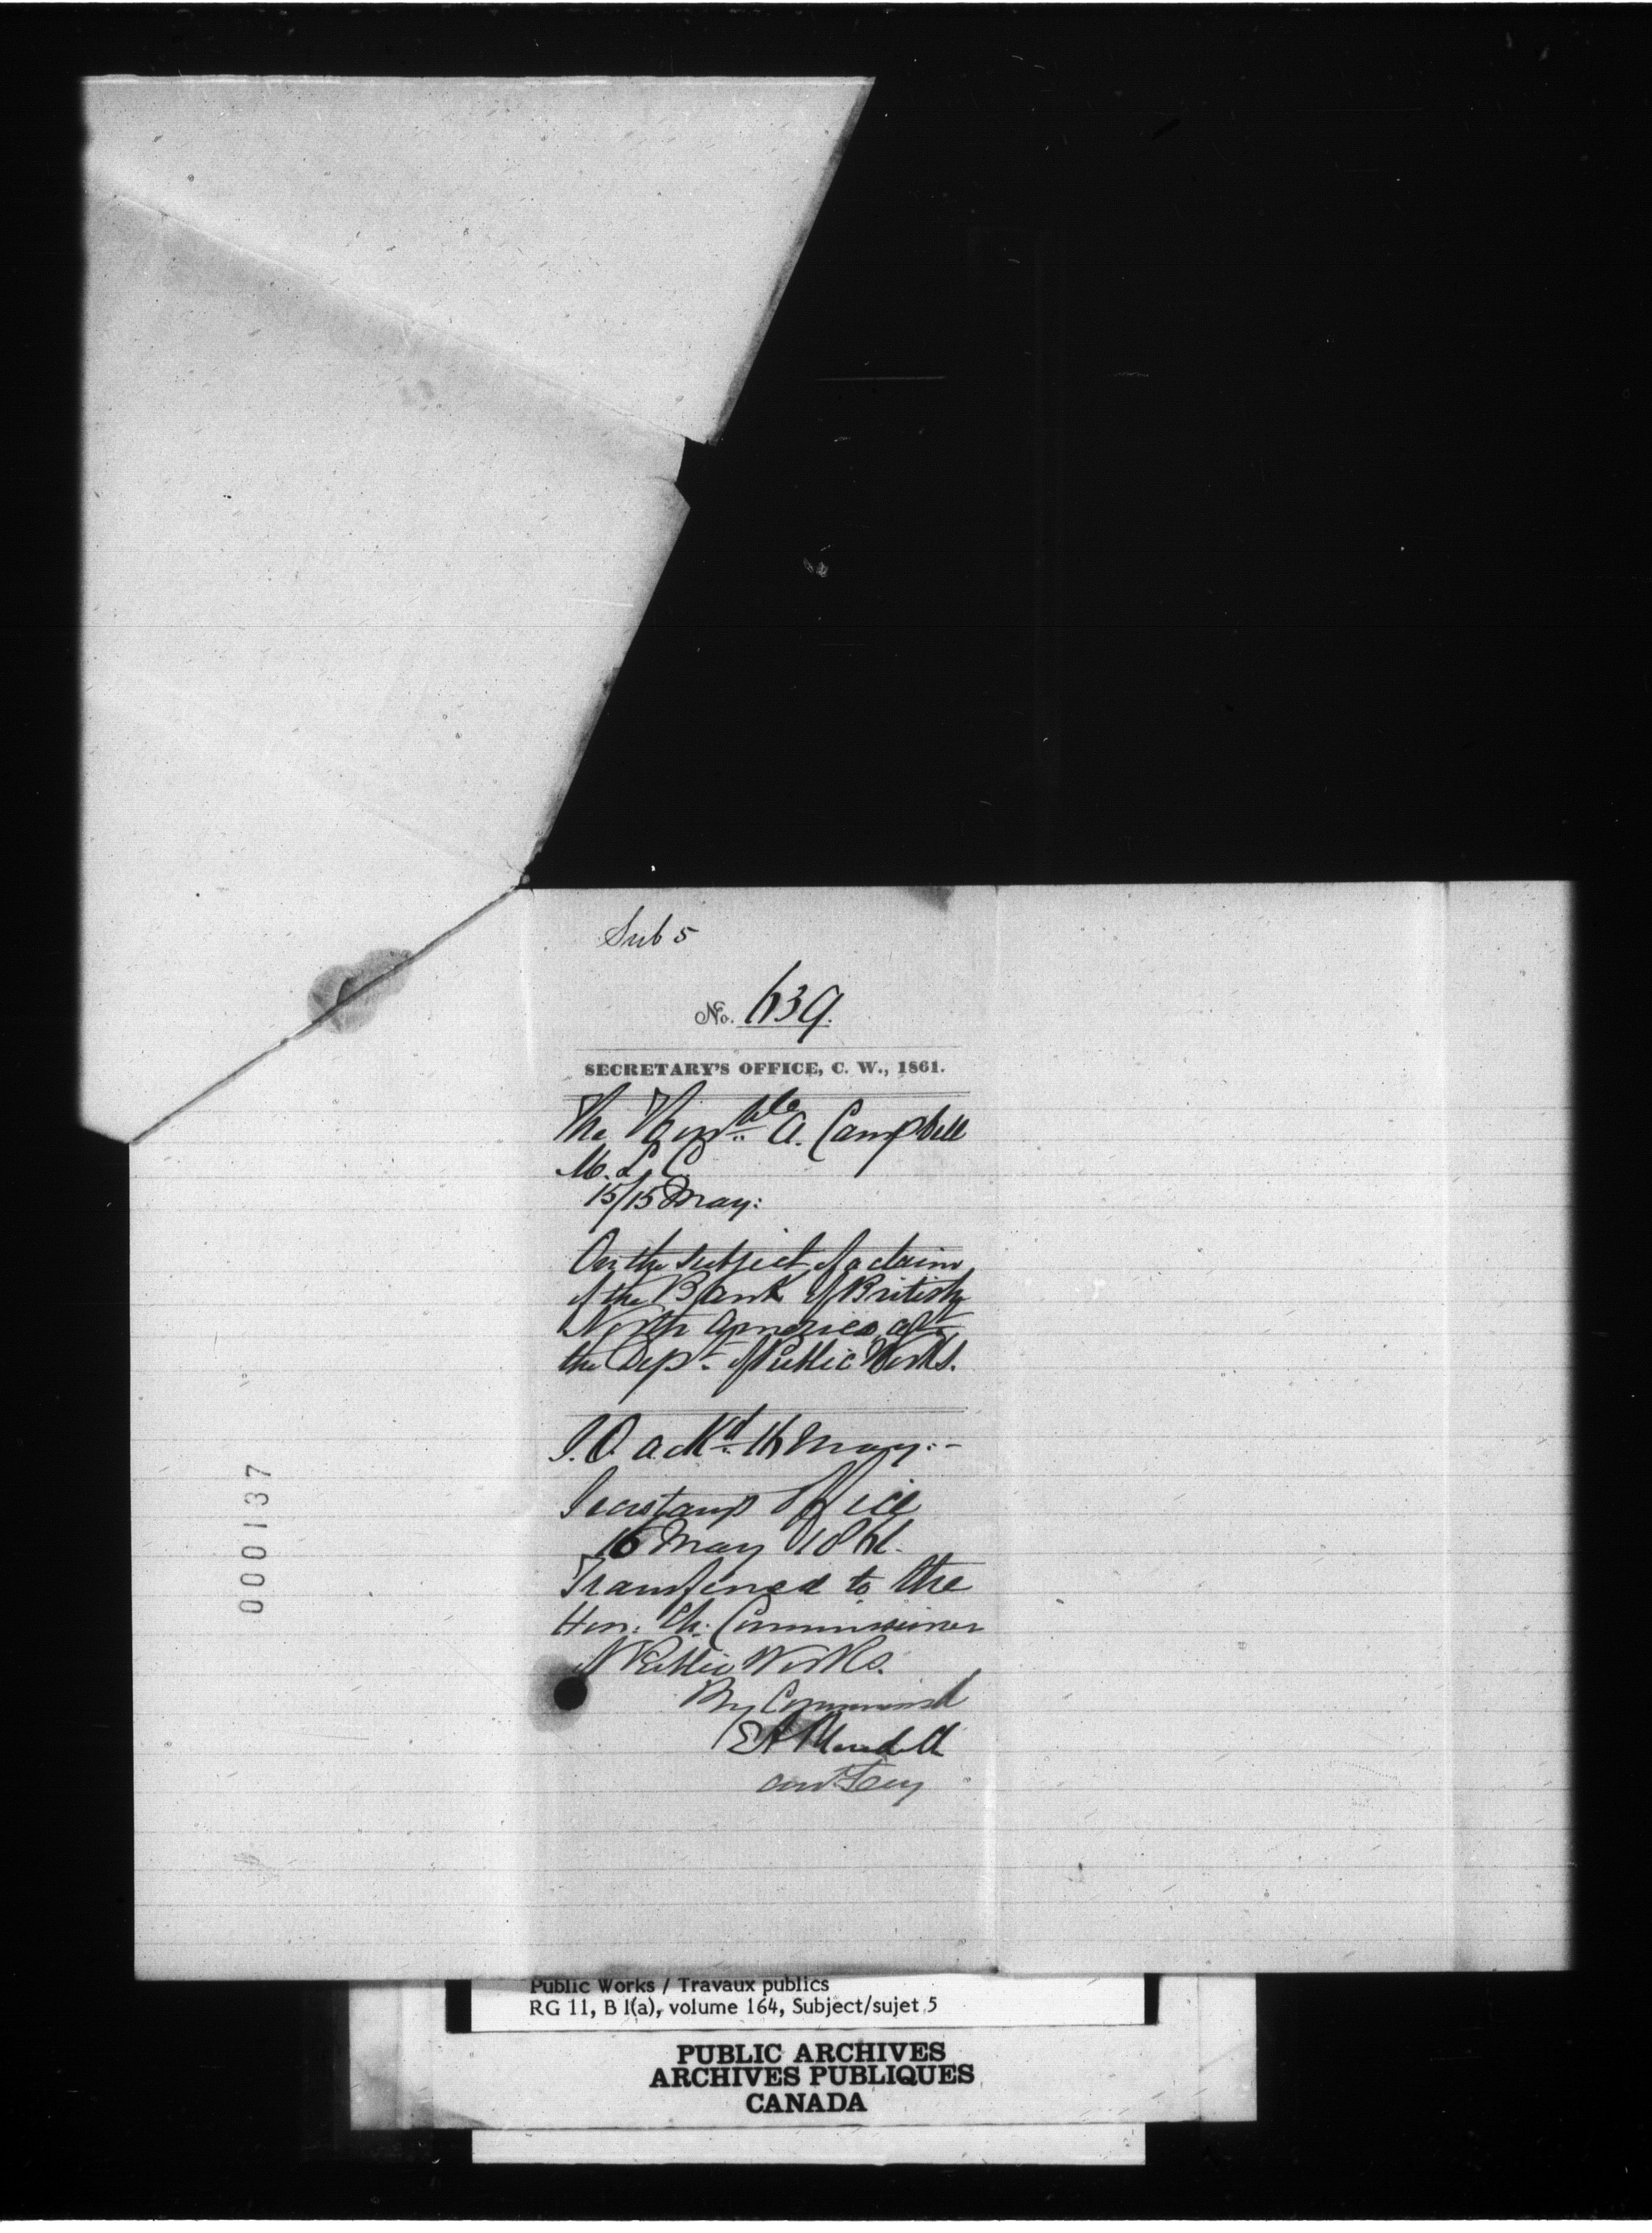 Sub 5
No. 639.
SECRETARY'S OFFICE, C. W., 1861.
The Honble A. Campbell
M. L. C.
15/15 May:
On the subject of a claim
of the Bank of British
North America agt
the Dept. of Public Works.
ackd. 16 May:-
Secretary's Office
16 May 1861.
Transferred to the
Hon: Ch: Commissioner
of Public Works.
By Command
E A Meredith
asst Secy
000137
Public Works / Travaux publics
RG 11, B 1(a), volume 164, Subject/sujet 5
PUBLIC ARCHIVES
ARCHIVES PUBLIQUES
CANADA